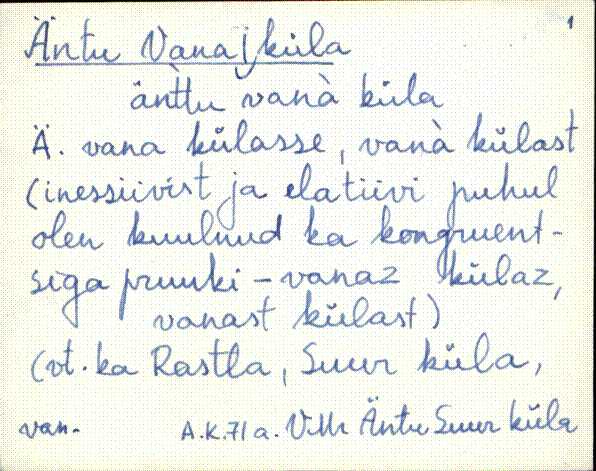 1
Äntu Vana|küla
äǹttu vanà küla
Ä. vana külasse, vanà külast
(inessiivist ja elatiivi puhul
olen kuulnud ka kongruent-
siga pruuki – vanaz külaz,
vanast külast)
(vt. ka Rastla, Suur küla,
van. A.K.71 a. V.Mr Äntu Suur küla